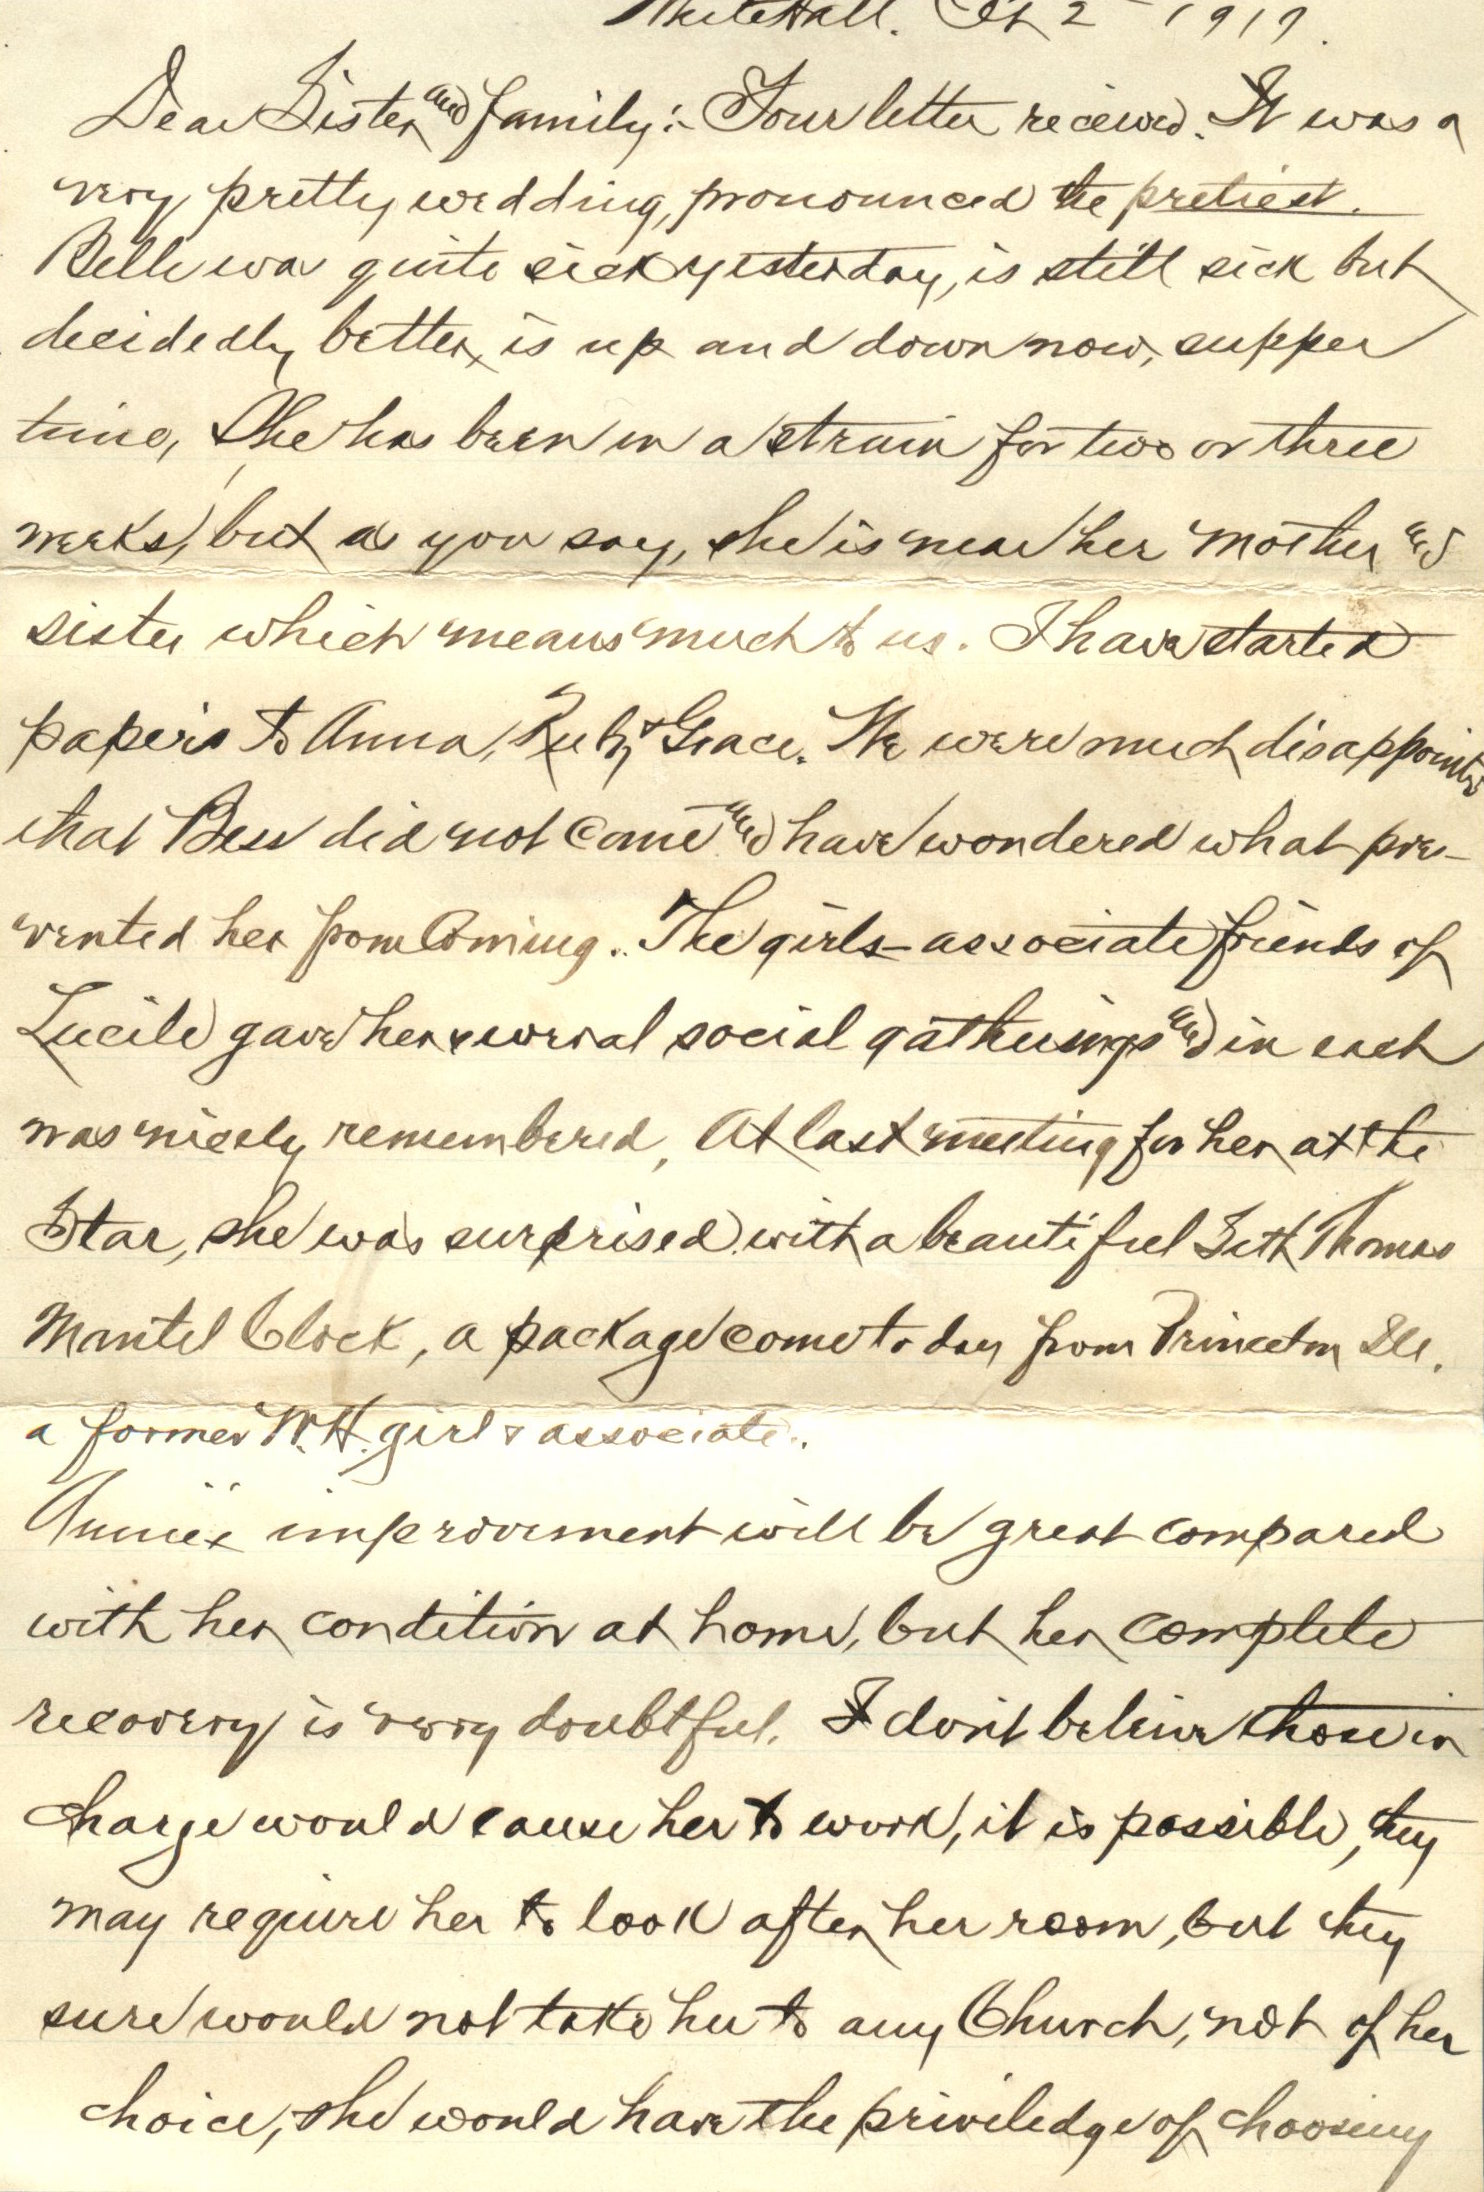 WhiteHall. Oct 2 - 1919.
Dear Sister and family:- Your letter recieved. It was a
very pretty wedding, pronounced the pretiest.
Belle was quite sick yesterday, is still sick but
decidedly better, is up and down now, supper
time, She has been in a strain for two or three
weeks, but as you say, she is near her mother and
sister which means much to us. I have started
papers to Anna, Ruby & Grace. We were much disappointed
that Bess did not come and have wondered what pre-
vented her from Coming. The girls - associate friends of
Lucile gave her several social gatherings and in each
was nicely remembered, At last meeting for her at the
Star, she was surprised with a beautiful Seth Thomas
Mantel Clock, a package come to day from Princeton Ill.
a former W.H. girl & associate.
Annie's improvement will be great compared
with her condition at home, but her complete
recovery is very doubtful. I don't beleive those in
charge would cause her to work, it is possible, they
may require her to look after her room, but they
sure would not take her to any Church, not of her
choice, she would have the priviledge of choosing